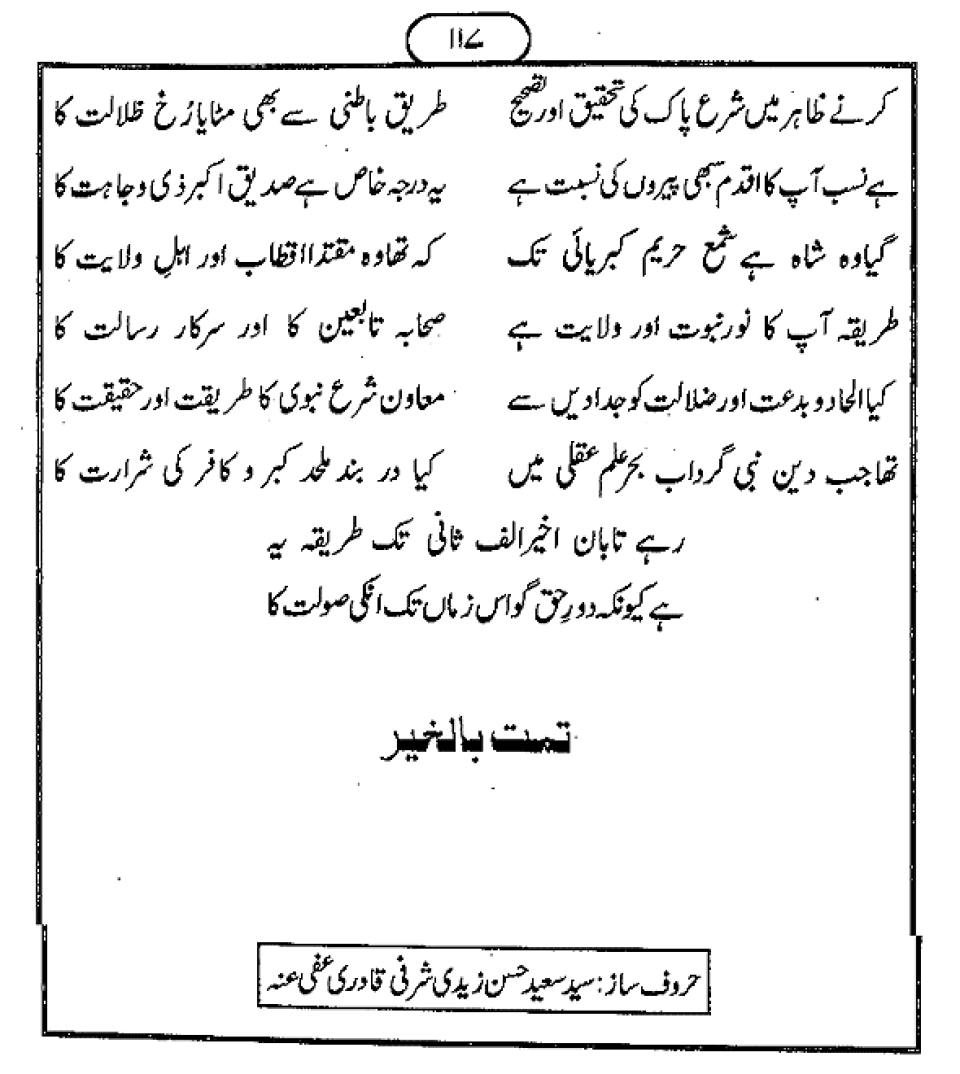 ۱۱۷
کرنے ظاہر میں شرع پاک کی تحقیق اور تصحیح طریق باطنی سے بھی مٹایا رُخ ظلالت کا
ہے نسب آپ کا اقدم سبھی پیروں کی نسبت ہے یہ درجہ خاص ہے صدیق اکبر ذی وجاہت کا
گیا وہ شاہ ہے شمع حریم کبریائی تک کہ تھا وہ مقتدا اقطاب اور اہلِ ولایت کا
طریقہ آپ کا نور نبوت اور ولایت ہے صحابہ تابعین کا اور سرکار رسالت کا
کیا الحاد و بدعت اور ضلالت کو جدا دیں سے معاون شرع نبوی کا طریقت اور حقیقت کا
تھا جب دین نبی گرداب بحر علم عقلی میں کیا در بند ملحد کبر و کافر کی شرارت کا
رہے تابان اخیر الف ثانی تک طریقہ یہ
ہے کیونکہ دورِ حق گو اس زماں تک انکی صولت کا
تمت بالخیر
حروف ساز: سید سعید حسن زیدی شرفی قادری عفی عنہ